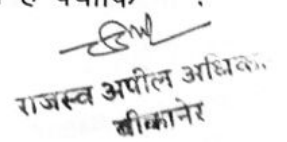 राजस्व अपील अधिका.
बीकानेर